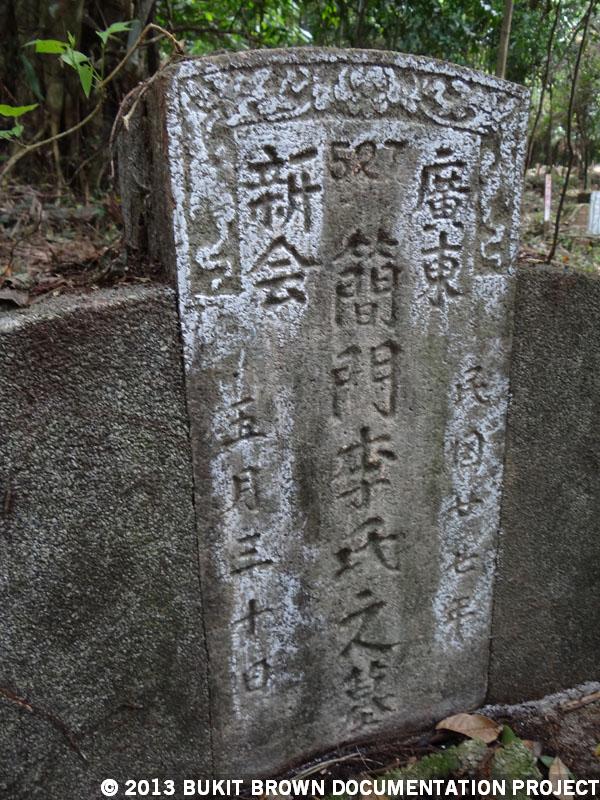 527
廣東
民国廿七年
簡門李氏之墓
新会
五月三十日
© 2013 BUKIT BROWN DOCUMENTATION PROJECT